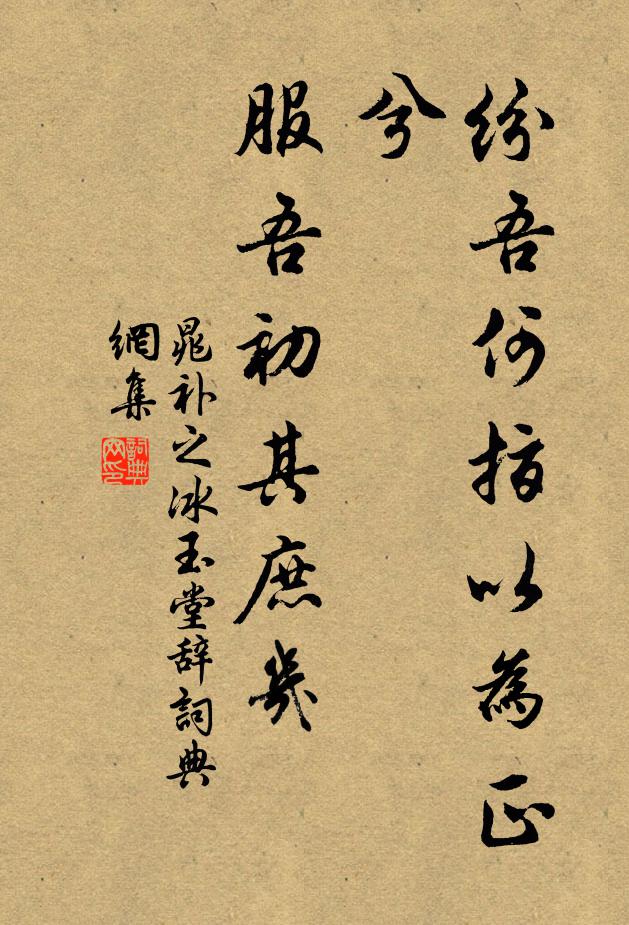 纷吾何指以為正
兮
服吾初其庶幾
晁补之冰玉堂辞詞典
網集
詞典
网印